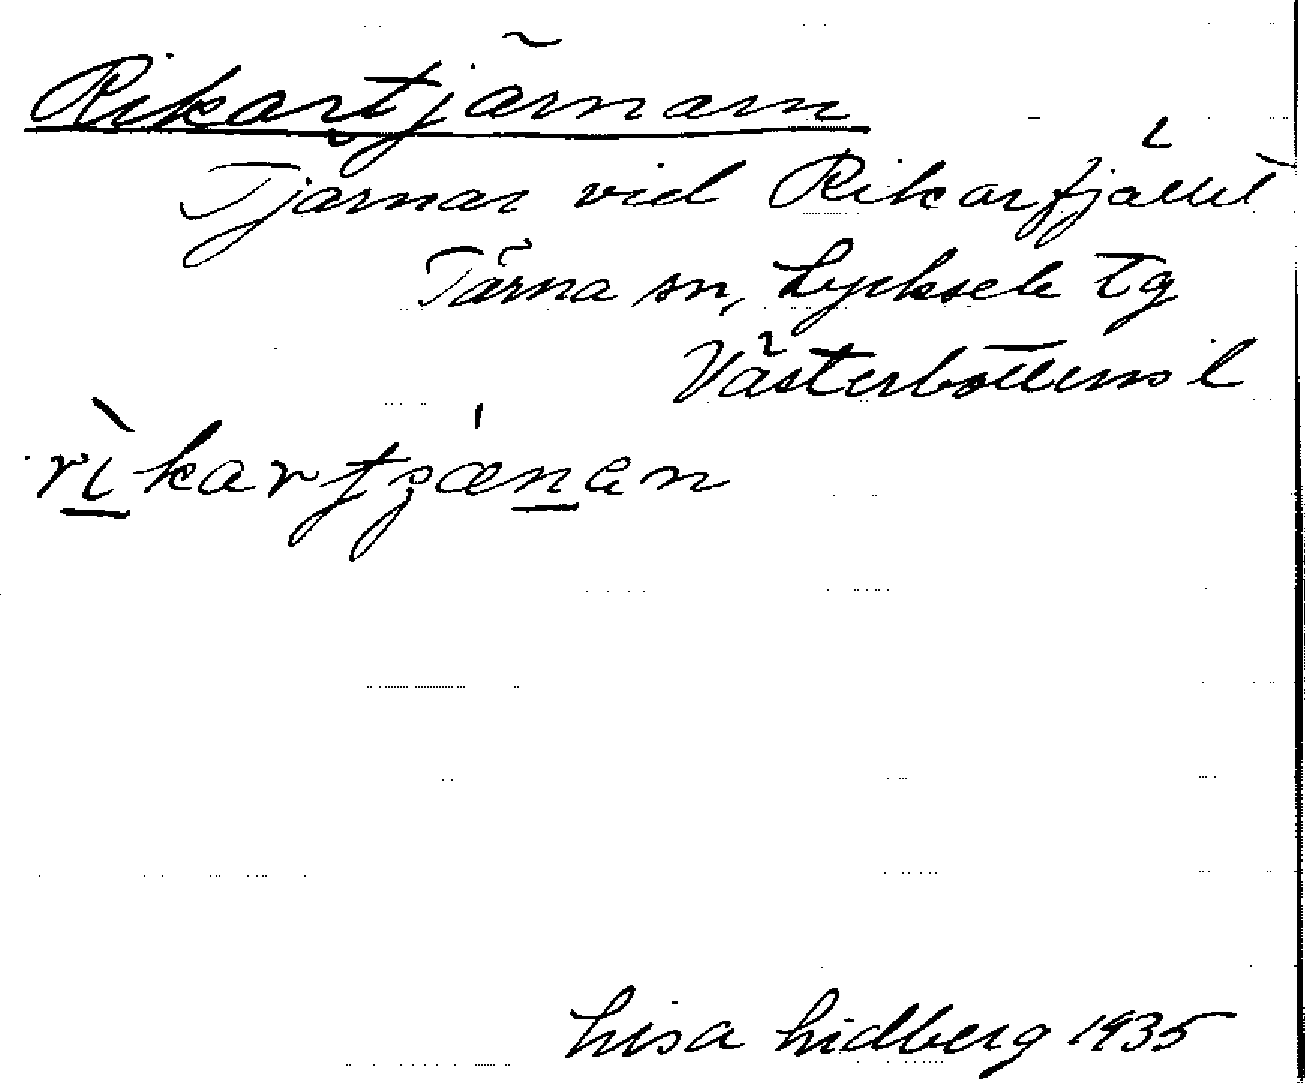 Rikartjärnarn
Tjärnar vid Rikarfjället
Tärna sn, Lycksele tg
Västerbottens l
rìkartjǽnan
Lisa Lidberg 1935